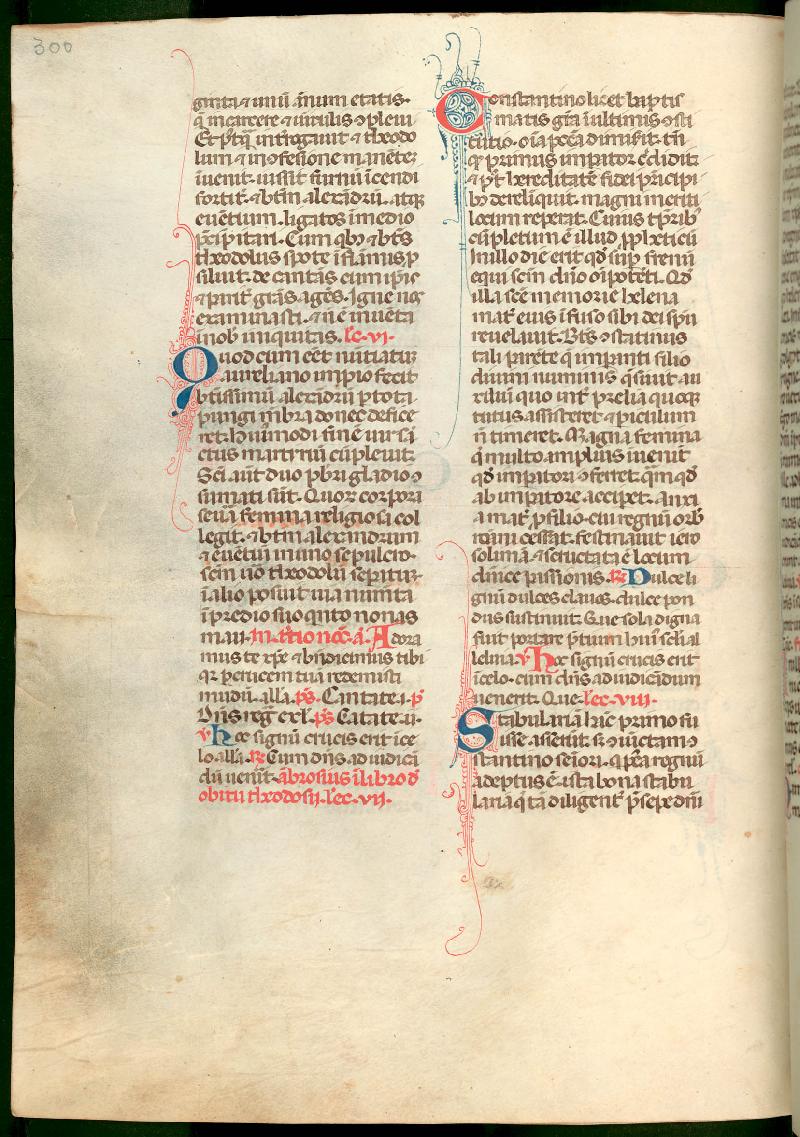 300
ginta ⁊ unũ ãnum etatis.
q̃ incarcere ⁊ uĩculis ɔpleui
Et p̃tq̃ introgauit ⁊ theodo
lum ⁊ in ɔfesione manẽteʒ
iuenit. iussit furnũ ĩcendi
fortit̃. ⁊ btm̃ alexãdrũ. atqʒ
euẽtium. ligatos ĩmedio
p̃cipitari. Cum qbʒ ⁊ bt̃s
theodolus spõte ĩ flãmis p
siluit. de cantãs cum ip̃is
⁊ punt̃ grãs agẽs. Igne nos
examinasti. ⁊ nõ ẽ inuẽta
inob iniquitas. lc̃. vi.
Quod cum eẽt nũtiatũ
aureliano impio fecit
btissimũ alexãdrũ p tota
pungi mẽbra donec defice
ret. hũiusmodi finẽ uir sã
ctus martyriũ cũpleuit.
Sc̃i aut̃ duo pbr̃i gladio ɔ
sumati sũt. Quoꝝ corpora
seu̾a femina religiosa col
legit. ⁊ btm̃ alexandrum
⁊ euẽtiũ in uno sepulcro.
sc̃m u̾o theodolũ sepultũ
ĩ alio posuit uia numẽta
ĩ predio suo qnto nonas
maii. Adora
mus te xp̃e ⁊ bñdicimus tibi
qʒ p crucem tuã redemisti
mudũ. all̃a. ps̃. Cantate. i. p̃
Dñs reg̃ exl̃. ps̃ Cãtate. ii.
v̾ hoc signũ crucis erit ĩ ce
lo. all̃a. R̃ Cum dñs ad iudici
dũ uenit̃. ãbrosius ĩ libro đ
obitu theodosij. lec. vij.
Constantino licet baptis
matis grã ĩ ultimis ɔsti
tuto. oĩa pcc̃a dimisit. tñ
qʒ primus imp̃ator c̃didit.
⁊ p̃t hereditatẽ fidei p̃ncipi
bʒ dereliquit. magni meriti
locum reperat. Cuius tp̃ribʒ
cũpletum ẽ illud p̱pheticũ
In illo die erit qđ sup frenũ
equi sc̃m dño oĩpotẽti. Qđ
illa sc̃e memorie helena
mat̃ eius ĩfuso sibi dei sp̃u
reuelauit. Bt̃s ɔstatinus
tali parẽte q̃ imp̃anti filio
diuini numinis q̃siuit au
xiliũ quo int̃ prelia quoqʒ
tutus assisteret ⁊ piculum
ñ timeret. Magna femina
q̃ multo amplius inuenit
qđ imp̃atori ɔferret. qm̃ qđ
ab imp̃atore accipet. Anxi
a mat̃ p filio. cui regnũ orb
romani cessãt. festinauit iero
solimã. ⁊ scrutata ẽ locum
dñice passionis. R̃ Dulce li
gnũ dulces clauos. dulce pon
dus sustinuit. Que sola digna
fuit portare p̃tium huĩ sclĩ al
leluia. v̾ hoc signũ crucis erit
ĩ celo. cum dñs ad iudicãdum
uenerit. Que. lec. viij.
Stabulariã hãc primo fu
isse asserũt. sʒ ɔiũctam ɔ
stantino seniori. q̃ p̃ea regnũ
adeptus ẽ. ista bona stabu
laria q̃ tã diligent̃ p̃sepe dñi